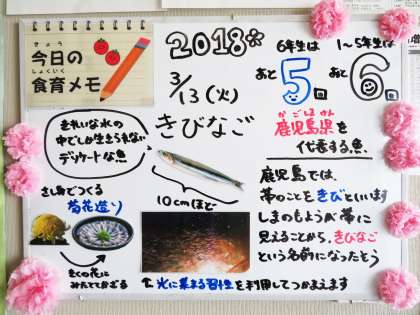 きょう
今日の
しょくいく
食育メモ
2018*
3/13(火)
6年生は
あと5回
1～5年生は
あと6回
きびなご
きれいな水の
中でしか生きられない
デリケートな魚
かごしまけん
鹿児島県を
代表する魚
10cmほど
さしみでつくる
菊花造り
きくの花に
みたててかざる
鹿児島では、
帯のことをきびといいます
しまのもようが帯に
見えることから、きびなご
という名前になったそう
光に集まる習性を利用してつかまえます